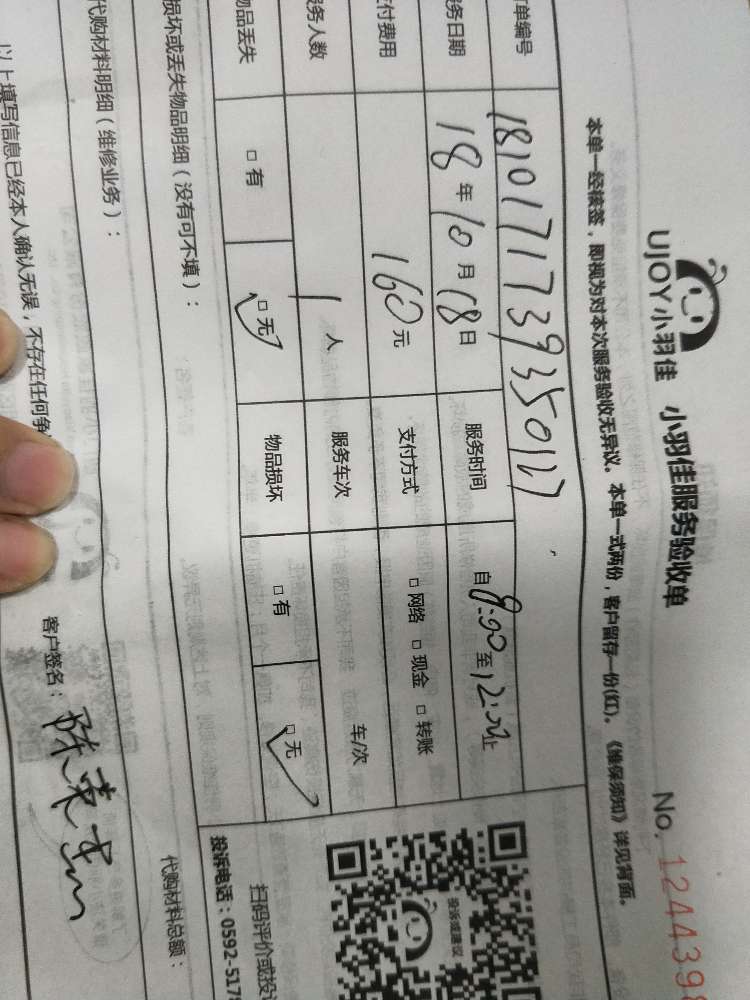 UJOY小羽佳 小羽佳服务验收单 No. 1244398
本单一经核签，即视为对本次服务验收无异议。本单一式两份，客户留存一份(红)。《维保须知》详见背面。
单编号
务日期 18年10月18日 服务时间 自8:00至12:00止
付费用 160元 支付方式 □网络 □现金 □转账
务人数 1人 服务车次 车/次
物品丢失 □有 □无 物品损坏 □有 □无
损坏或丢失物品明细（没有可不填）：
扫码评价或投
投诉或建议
投诉电话：0592-5178
代购材料明细（维修业务）： 代购材料总额：
以上填写信息已经本人确认无误，不存在任何争
客户签名：